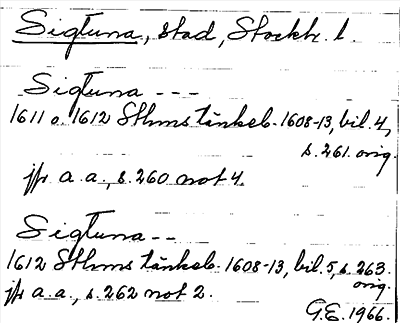 Sigtuna, stad, Stockh. l.
Sigtuna - - -
1611 o. 1612 Sthms tänkeb. 1608-13, bil. 4,
s. 261. orig.
jfr a. a., s. 260 not 4.
Sigtuna - -
1612 Sthms tänkeb. 1608-13, bil. 5, s. 263.
orig.
jfr a. a., s. 262 not 2.
G.E. 1966.